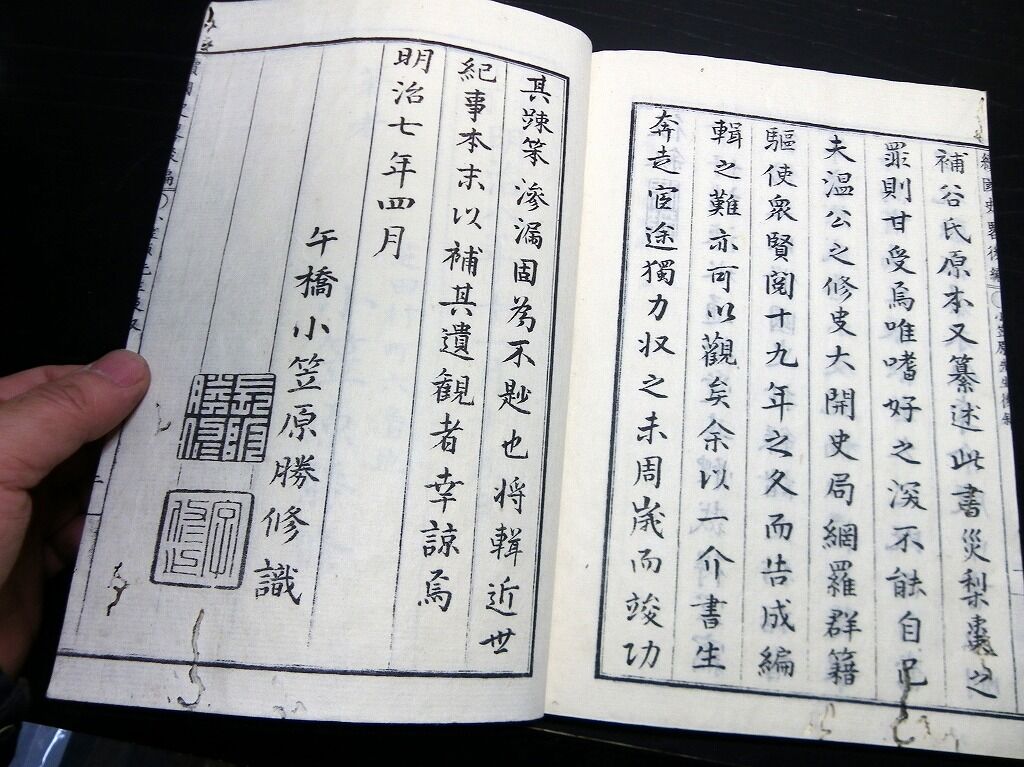 補谷氏原本又纂述此書災梨棗之
罪則甘受焉唯嗜好之深不能自已
夫温公之修史大開史局網羅群籍
驅使衆賢閲十九年之久而告成編
輯之難亦可以觀矣余以一介書生
奔走宦途獨力収之未周歳而竣功
其踈笨滲漏固為不尠也将輯近世
紀事本末以補其遺観者幸諒焉
明治七年四月
午橋小笠原勝修識